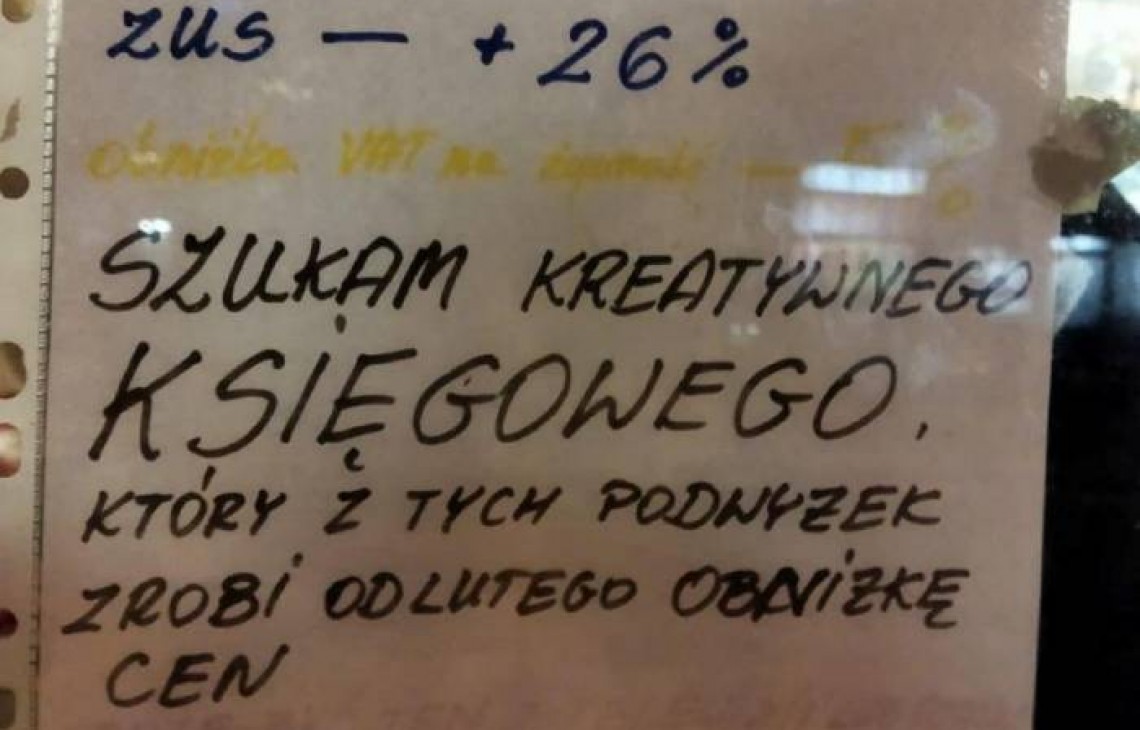 ZUS — + 26%
obniżka VAT na żywność —
SZUKAM KREATYWNEGO
KSIĘGOWEGO,
KTÓRY Z TYCH PODWYZEK
ZROBI OD LUTEGO OBNIZKĘ
CEN